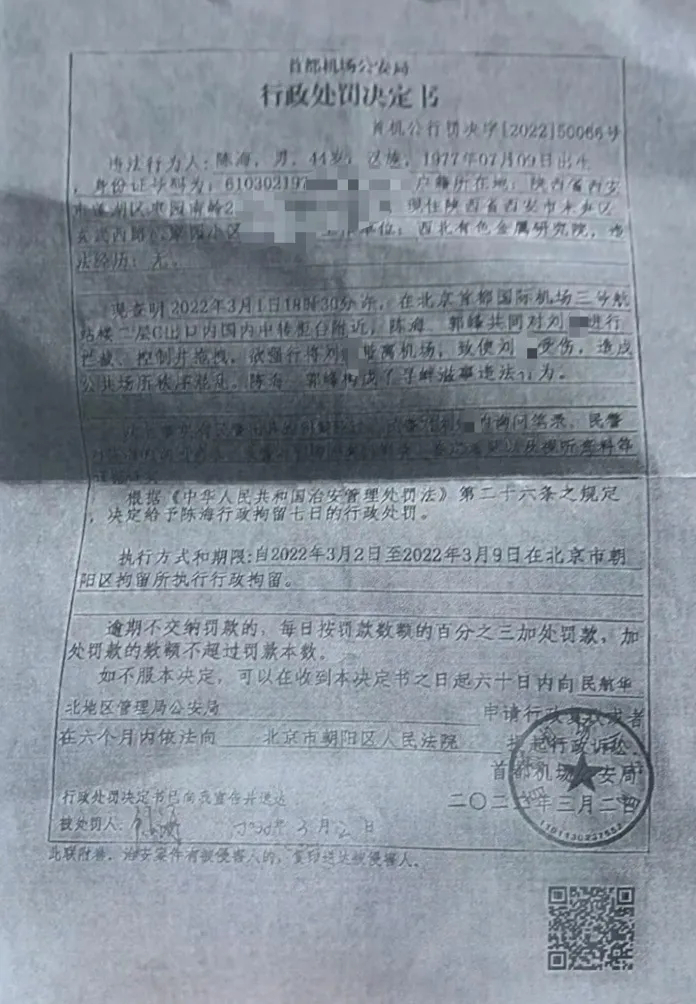 首都机场公安局
行政处罚决定书
首机公行罚决字[2022]50066号
违法行为人:陈海,男,44岁,汉族,1977年07月09日出生
,身份证号码为:610302197 户籍所在地:陕西省西安
市莲湖区枣园南岭2 现住陕西省西安市未央区
玄武西路 小区 工作单位:西北有色金属研究院,违
法经历:无。
现查明2022年3月1日18时30分许,在北京首都国际机场三号航
站楼二层C出口内国内中转柜台附近,陈海、郭峰共同对刘 进行
拦截、控制并拖拽,欲强行将刘 驶离机场,致使刘 受伤,造成
公共场所秩序混乱。陈海、郭峰构成了寻衅滋事违法行为。
询问笔录、民警
视听资料等
根据《中华人民共和国治安管理处罚法》第二十六条之规定
,决定给予陈海行政拘留七日的行政处罚。
执行方式和期限:自2022年3月2日至2022年3月9日在北京市朝
阳区拘留所执行行政拘留。
逾期不交纳罚款的,每日按罚款数额的百分之三加处罚款,加
处罚款的数额不超过罚款本数。
如不服本决定,可以在收到本决定书之日起六十日内向民航华
北地区管理局公安局 申请行政复议或者
在六个月内依法向 北京市朝阳区人民法院 提起行政诉讼。
首都机场公安局
二〇二二年三月二日
行政处罚决定书已向我宣告并送达
被处罚人: 3月2日
此联附卷。治安案件有被侵害人的,复印送达被侵害人。